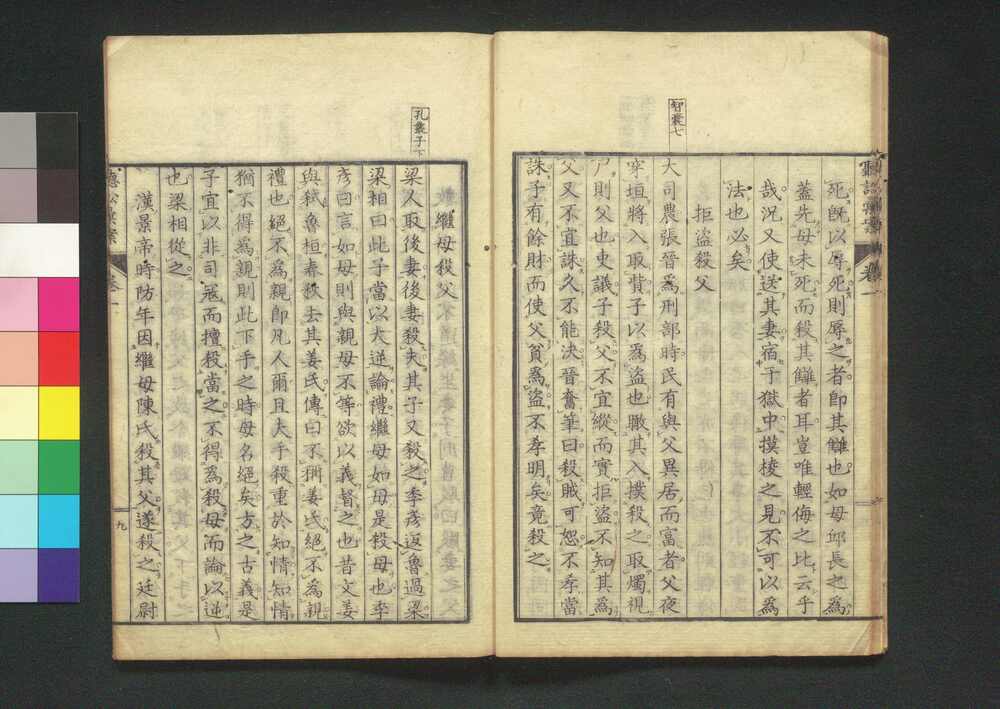 死既以辱死則辱之者即其讎也如毋邱長之爲
蓋先母未死而殺其讎者耳豈唯輕侮之比云乎
哉況又使送其妻宿于獄中摸棱之見不可以爲
法也必矣
拒盜殺父
智囊七
大司農張晉爲刑部時民有與父異居而富者父夜
穿垣將入取貲子以爲盜也瞰其入撲殺之取燭視
尸則父也吏議子殺父不宜縱而實拒盜不知其爲
父又不宜誅久不能決晉奮筆曰殺賊可恕不孝當
誅子有餘財而使父貧爲盜不孝明矣竟殺之
繼母殺父
孔叢子下
梁人取後妻後妻殺夫其子又殺之季彦返魯過梁
梁相曰此子當以大逆論禮繼母如母是殺母也季
彦曰言如母則與親母不等欲以義督之也昔文姜
與弑魯桓春秋去其姜氏傳曰不稱姜氏絕不爲親
禮也絕不爲親即凡人爾且夫手殺重於知情知情
猶不得爲親則此下手之時母名絕矣方之古義是
子宜以非司冦而擅殺當之不得爲殺母而論以逆
也梁相從之
漢景帝時防年因繼母陳氏殺其父遂殺之廷尉
九